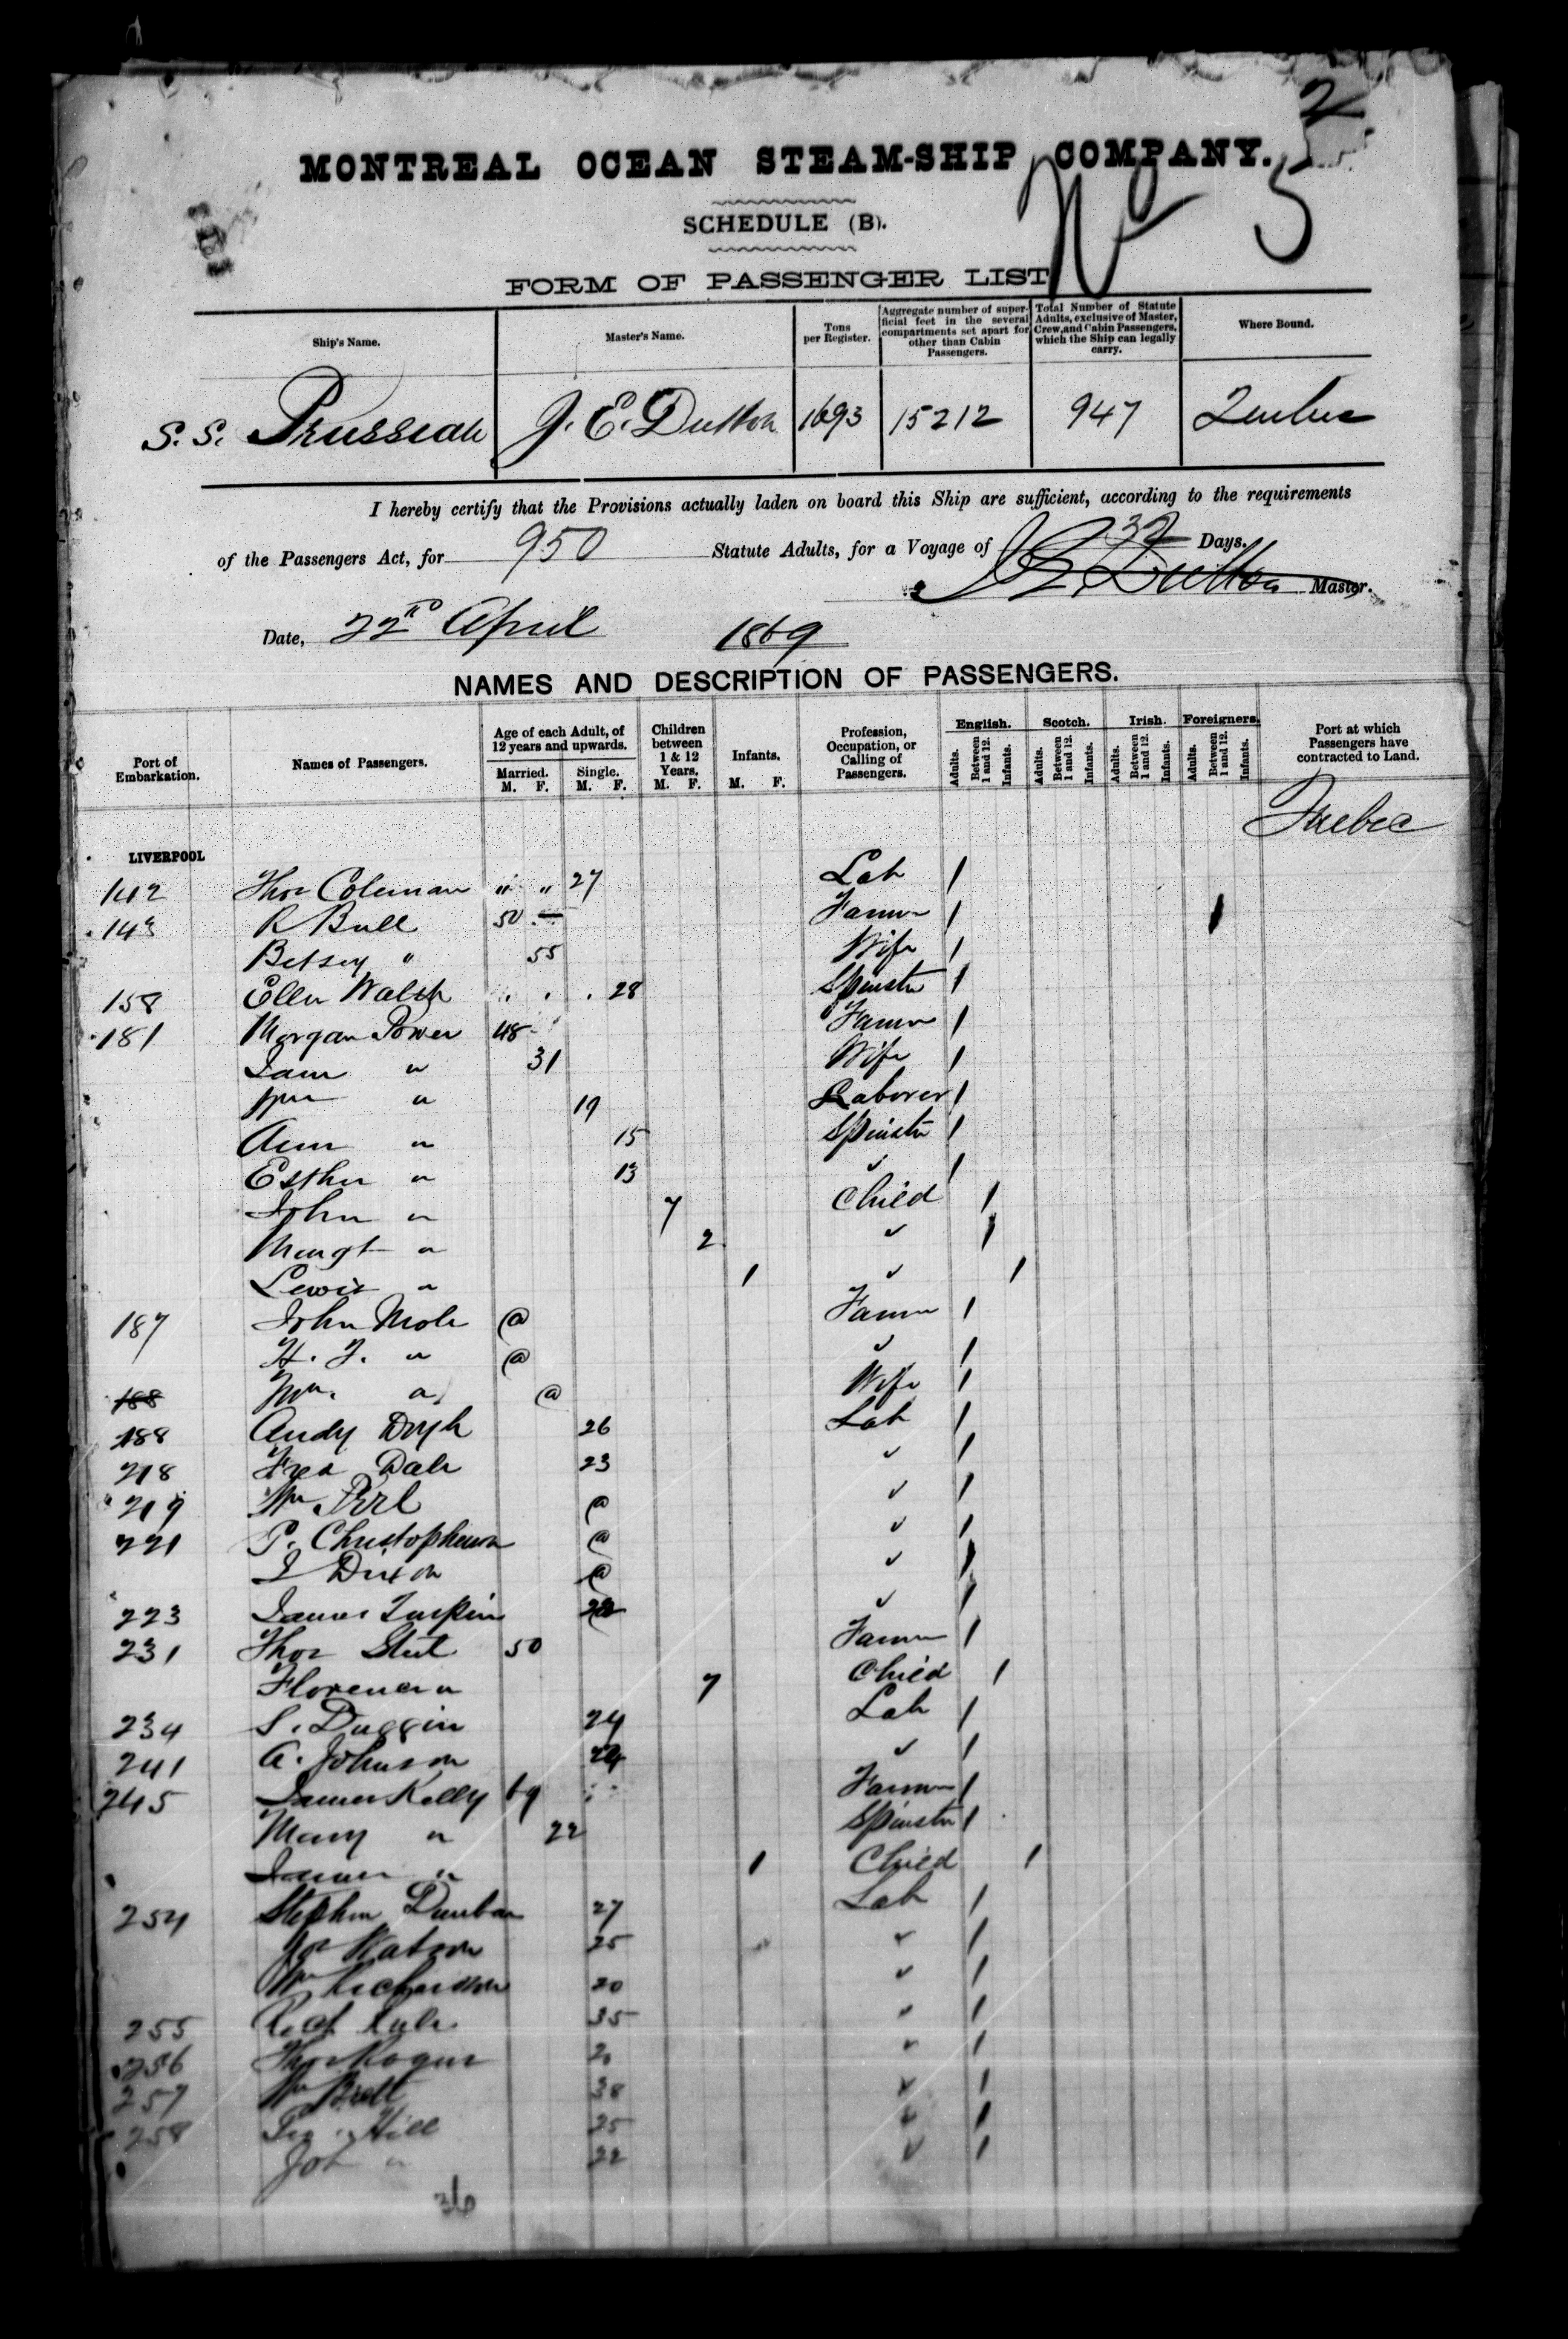 2
MONTREAL OCEAN STEAM-SHIP COMPANY.
No 5
SCHEDULE (B).
FORM OF PASSENGER LIST
Ship's Name. Master's Name. Tons per Register. Aggregate number of superficial feet in the several compartments set apart for other than Cabin Passengers. Total Number of Statute Adults, exclusive of Master, Crew, and Cabin Passengers, which the Ship can legally carry. Where Bound.
S.S. Prussian J. E. Dutton 1693 15212 947 Quebec
I hereby certify that the Provisions actually laden on board this Ship are sufficient, according to the requirements
of the Passengers Act, for 950 Statute Adults, for a Voyage of 32 Days.
J E Dutton Master.
Date, 22nd April 1869
NAMES AND DESCRIPTION OF PASSENGERS.
Port of Embarkation. Names of Passengers. Age of each Adult, of 12 years and upwards. Married. M. F. Single. M. F. Children between 1 & 12 Years. M. F. Infants. M. F. Profession, Occupation, or Calling of Passengers. English. Adults. Between 1 and 12. Infants. Scotch. Adults. Between 1 and 12. Infants. Irish. Adults. Between 1 and 12. Infants. Foreigners. Adults. Between 1 and 12. Infants. Port at which Passengers have contracted to Land.
Quebec
LIVERPOOL
142 Thos Coleman " " 27 Lab 1
143 R Bull 50 Farmer 1 1
Betsey " 55 Wife 1
158 Ellen Walsh 28 Spinster 1
181 Morgan Power 48 Farmer 1
Jane " 31 Wife 1
Wm " 19 Laborer 1
Ann " 15 Spinster 1
Esther " 13 " 1
John " 7 Child 1
Margt " 2 " 1
Lewis " 1 " 1
187 John Mole @ Farmer 1
H. J. " @ " 1
188 Mrs. " @ Wife 1
188 Andy Doyle 26 Lab 1
218 Fred Dale 23 " 1
219 Wm @ " 1
221 P. Christopherson @ " 1
J Dixon @ " 1
223 James Turpin " 1
231 Thos 50 Farmer 1
Florence " 7 Child 1
234 S. Duggin 24 Lab 1
241 A. Johnson 24 " 1
245 James Kelly 69 Farmer 1
Mary " 22 Spinster 1
James " 1 Child 1
254 Stephen Dunbar 27 Lab 1
Jos Watson 25 " 1
Wm Richardson 20 " 1
255 Robt 35 " 1
256 Thos Rogers 20 " 1
257 Wm 38 " 1
258 Geo. Hill 25 " 1
Jos " 22 " 1
36